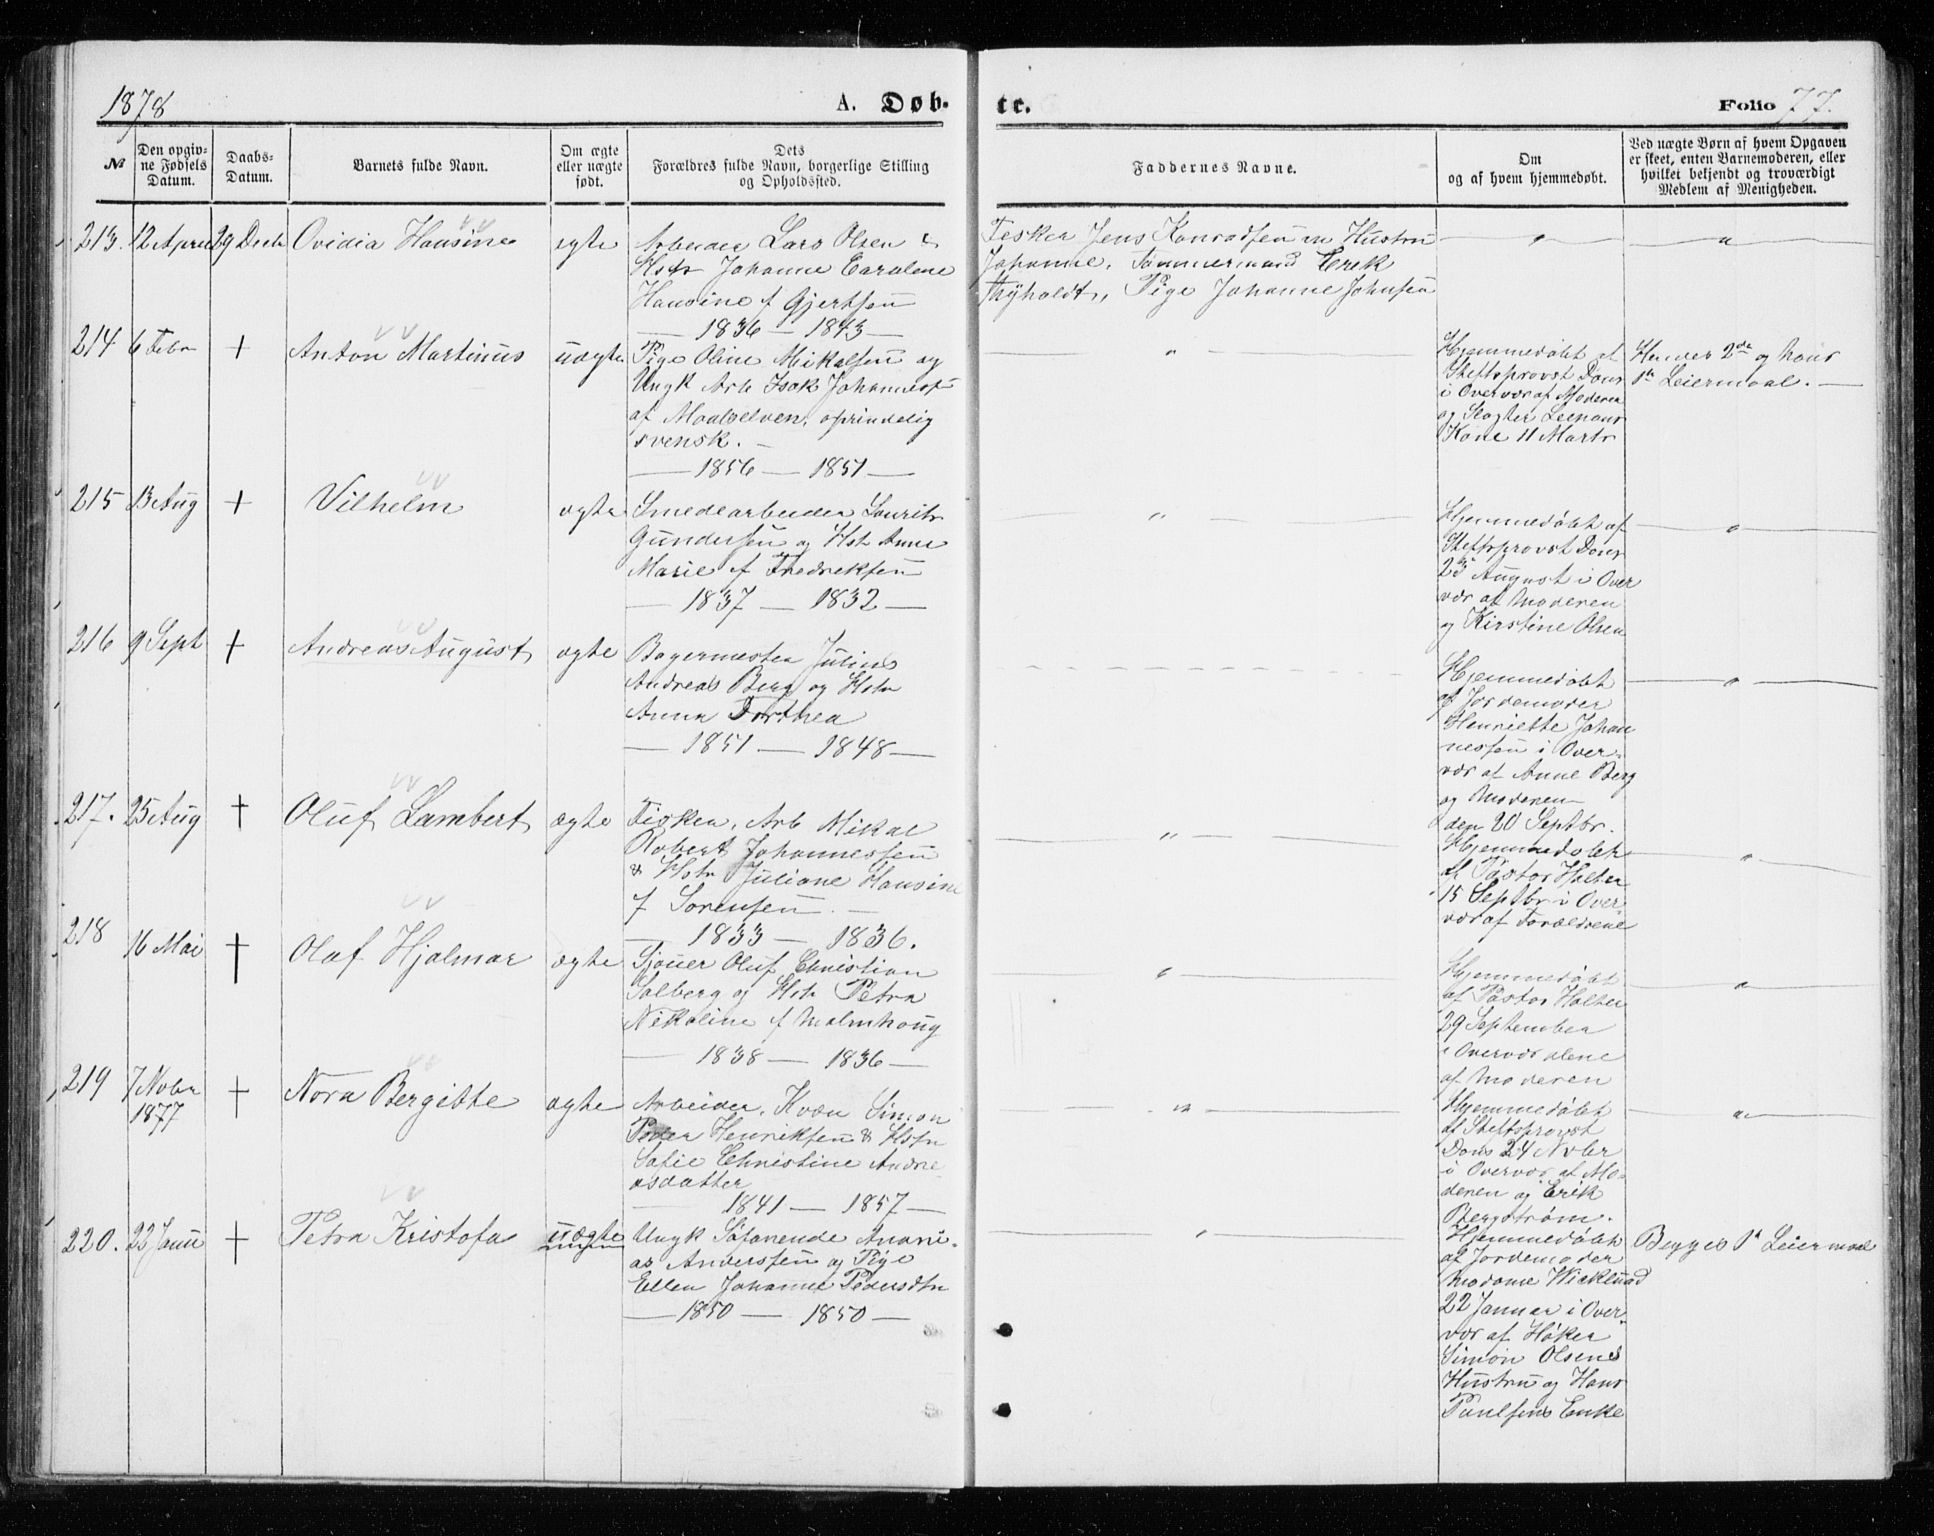 1878
A. Døb-
te.
Folio 77.
№
Den opgiv-
ne Fødsels
Datum.
Daabs-
Datum.
Barnets fulde Navn.
Om ægte
eller uægte
født.
Dets
Forældres fulde Navn, borgerlige Stilling
og Opholdssted.
Faddernes Navne.
Om
og af hvem hjemmedøbt.
Ved uægte Børn af hvem Opgaven
er skeet, enten Barnemoderen, eller
hvilket bekjendt og troværdigt
Medlem af Menigheden.
213. 12 April 29 Decb Ovidia Hansine egte
Arbeider Lars Olsen &
Hstr Johanne Carolene
Hansine f Gjertsen
— 1836 — 1843 —
Fisker Jens Konradsen m Hustru
Johanne, Tømmermand Erik
Thyholdt, Pige Johanne Johnsen
214 6 Febr + Anton Martinus uægte
Pige Oline Mikalsen og
Ungk Arb Isak Johannes
af Maalselven, oprindelig
svensk. —
— 1856 — 1851 —
Hjemmedøbt af
Stiftsprovst Dons
i Overvær af Moderen
og Slagter
Kone 11 Marts
Hendes 2de og hans
1ste Leiermaal. —
215 13 Aug + Vilhelm ægte
Smedearbeider Laurits
Gundersen og Hstr Anne
Marie f Fredriksen
— 1837 — 1832 —
Hjemmedøbt af
Stiftsprovst Dons
23 August i Over
vær af Moderen
og Kirstine Olsen
216 9 Sept + Andreas August ægte
Bagermester Julius
Andreas Berg og Hstr
Anna Dorthea
— 1851 — 1848 —
Hjemmedøbt
af Jordemoder
Henriette Johan
nessen i Over-
vær af Anne Berg
og Moderen
den 20 Septbr.
217. 25 Aug + Oluf Lambert ægte
Fisker, Arb Mikal
Robert Johannessen
& Hstr Juliane Hansine
f Sørensen. —
— 1833 — 1836.
Hjemmedøbt
af Pastor Holter
15 Septbr i Over-
vær af Forældrene
218 16 Mai + Olaf Hjalmar ægte
Sjouer Oluf Christian
Solberg og Hstr Petra
Nikoline f Malmhoug
— 1838 — 1836 —
Hjemmedøbt
af Pastor Holter
29 September
i Overvær alene
af Moderen
219 7 Novbr
1877 + Nora Bergitte ægte
Arbeider, Kvæn Simon
Peder Henriksen & Hstr
Sofie Christine Andre
asdatter
— 1841 — 1857 —
Hjemmedøbt
af Stiftsprovst
Dons 24 Novbr
i Overvær af Mo-
deren og Erik
Bergstrøm.
220. 22 Janu + Petra Kristofa uægte
Ungk Søfarende Anani-
as Andersen og Pige
Ellen Johanne Pedersdtr
— 1850 — 1850 —
Hjemmedøbt
af Jordemoder
Madame Wiklund
22 Januar i Over-
vær af Høker
Simon Olsens
Hustru og Hans
Paulsens Enke
Begges 1ste Leiermaal